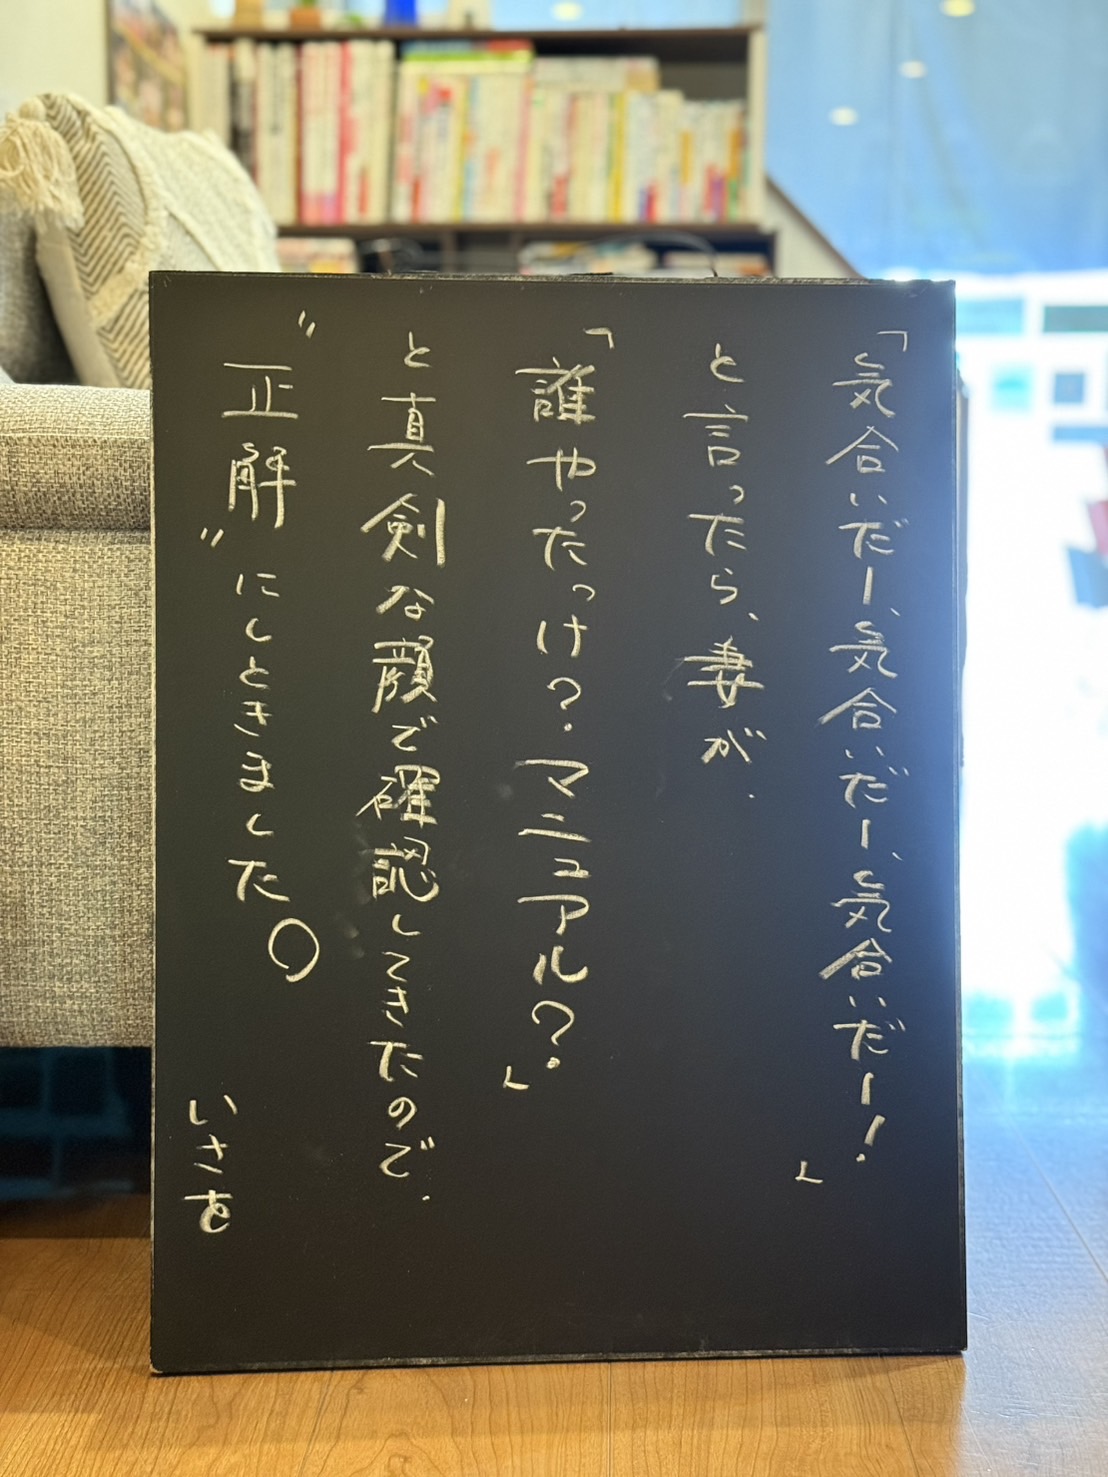 「気合いだー、気合いだー、気合いだー!」
と言ったら、妻が、
「誰やったっけ?マニュアル?」
と真剣な顔で確認してきたので、
"正解"にしときました○
いさを